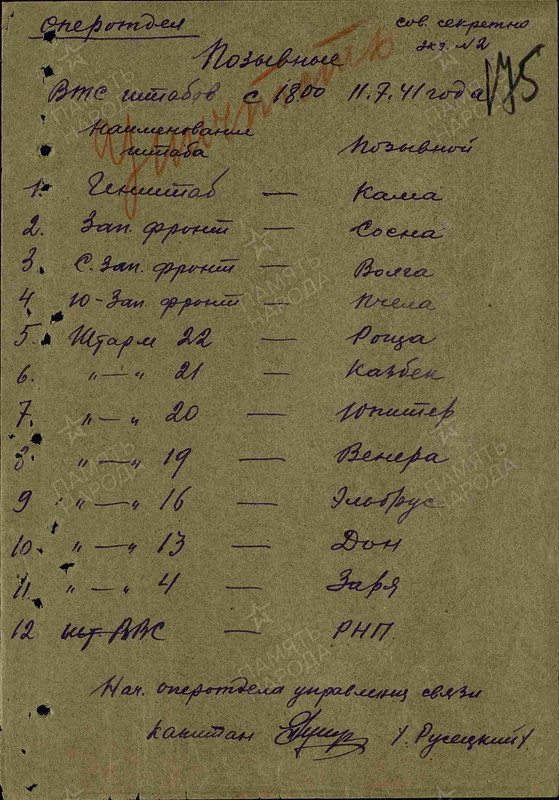 Оперотдел
сов. секретно
экз. №2
175
Позывные
ВТС штабов с 18.00 11.7.41 года
Наименование штаба
Позывной
1. Генштаб — Кама
2. Зап. фронт — Сосна
3. С. Зап. фронт — Волга
4 Ю-Зап. фронт — Пчела
5. Штарм 22 — Роща
6. „—„ 21 — Казбек
7. „—„ 20 — Юпитер
8. „—„ 19 — Венера
9 „—„ 16 — Эльбрус
10. „—„ 13 — Дон
11. „—„ 4 — Заря
12 шт. ВВС — РНП.
Нач. оперотдела управления связи
капитан /Русецкий/
ПАМЯТЬ НАРОДА